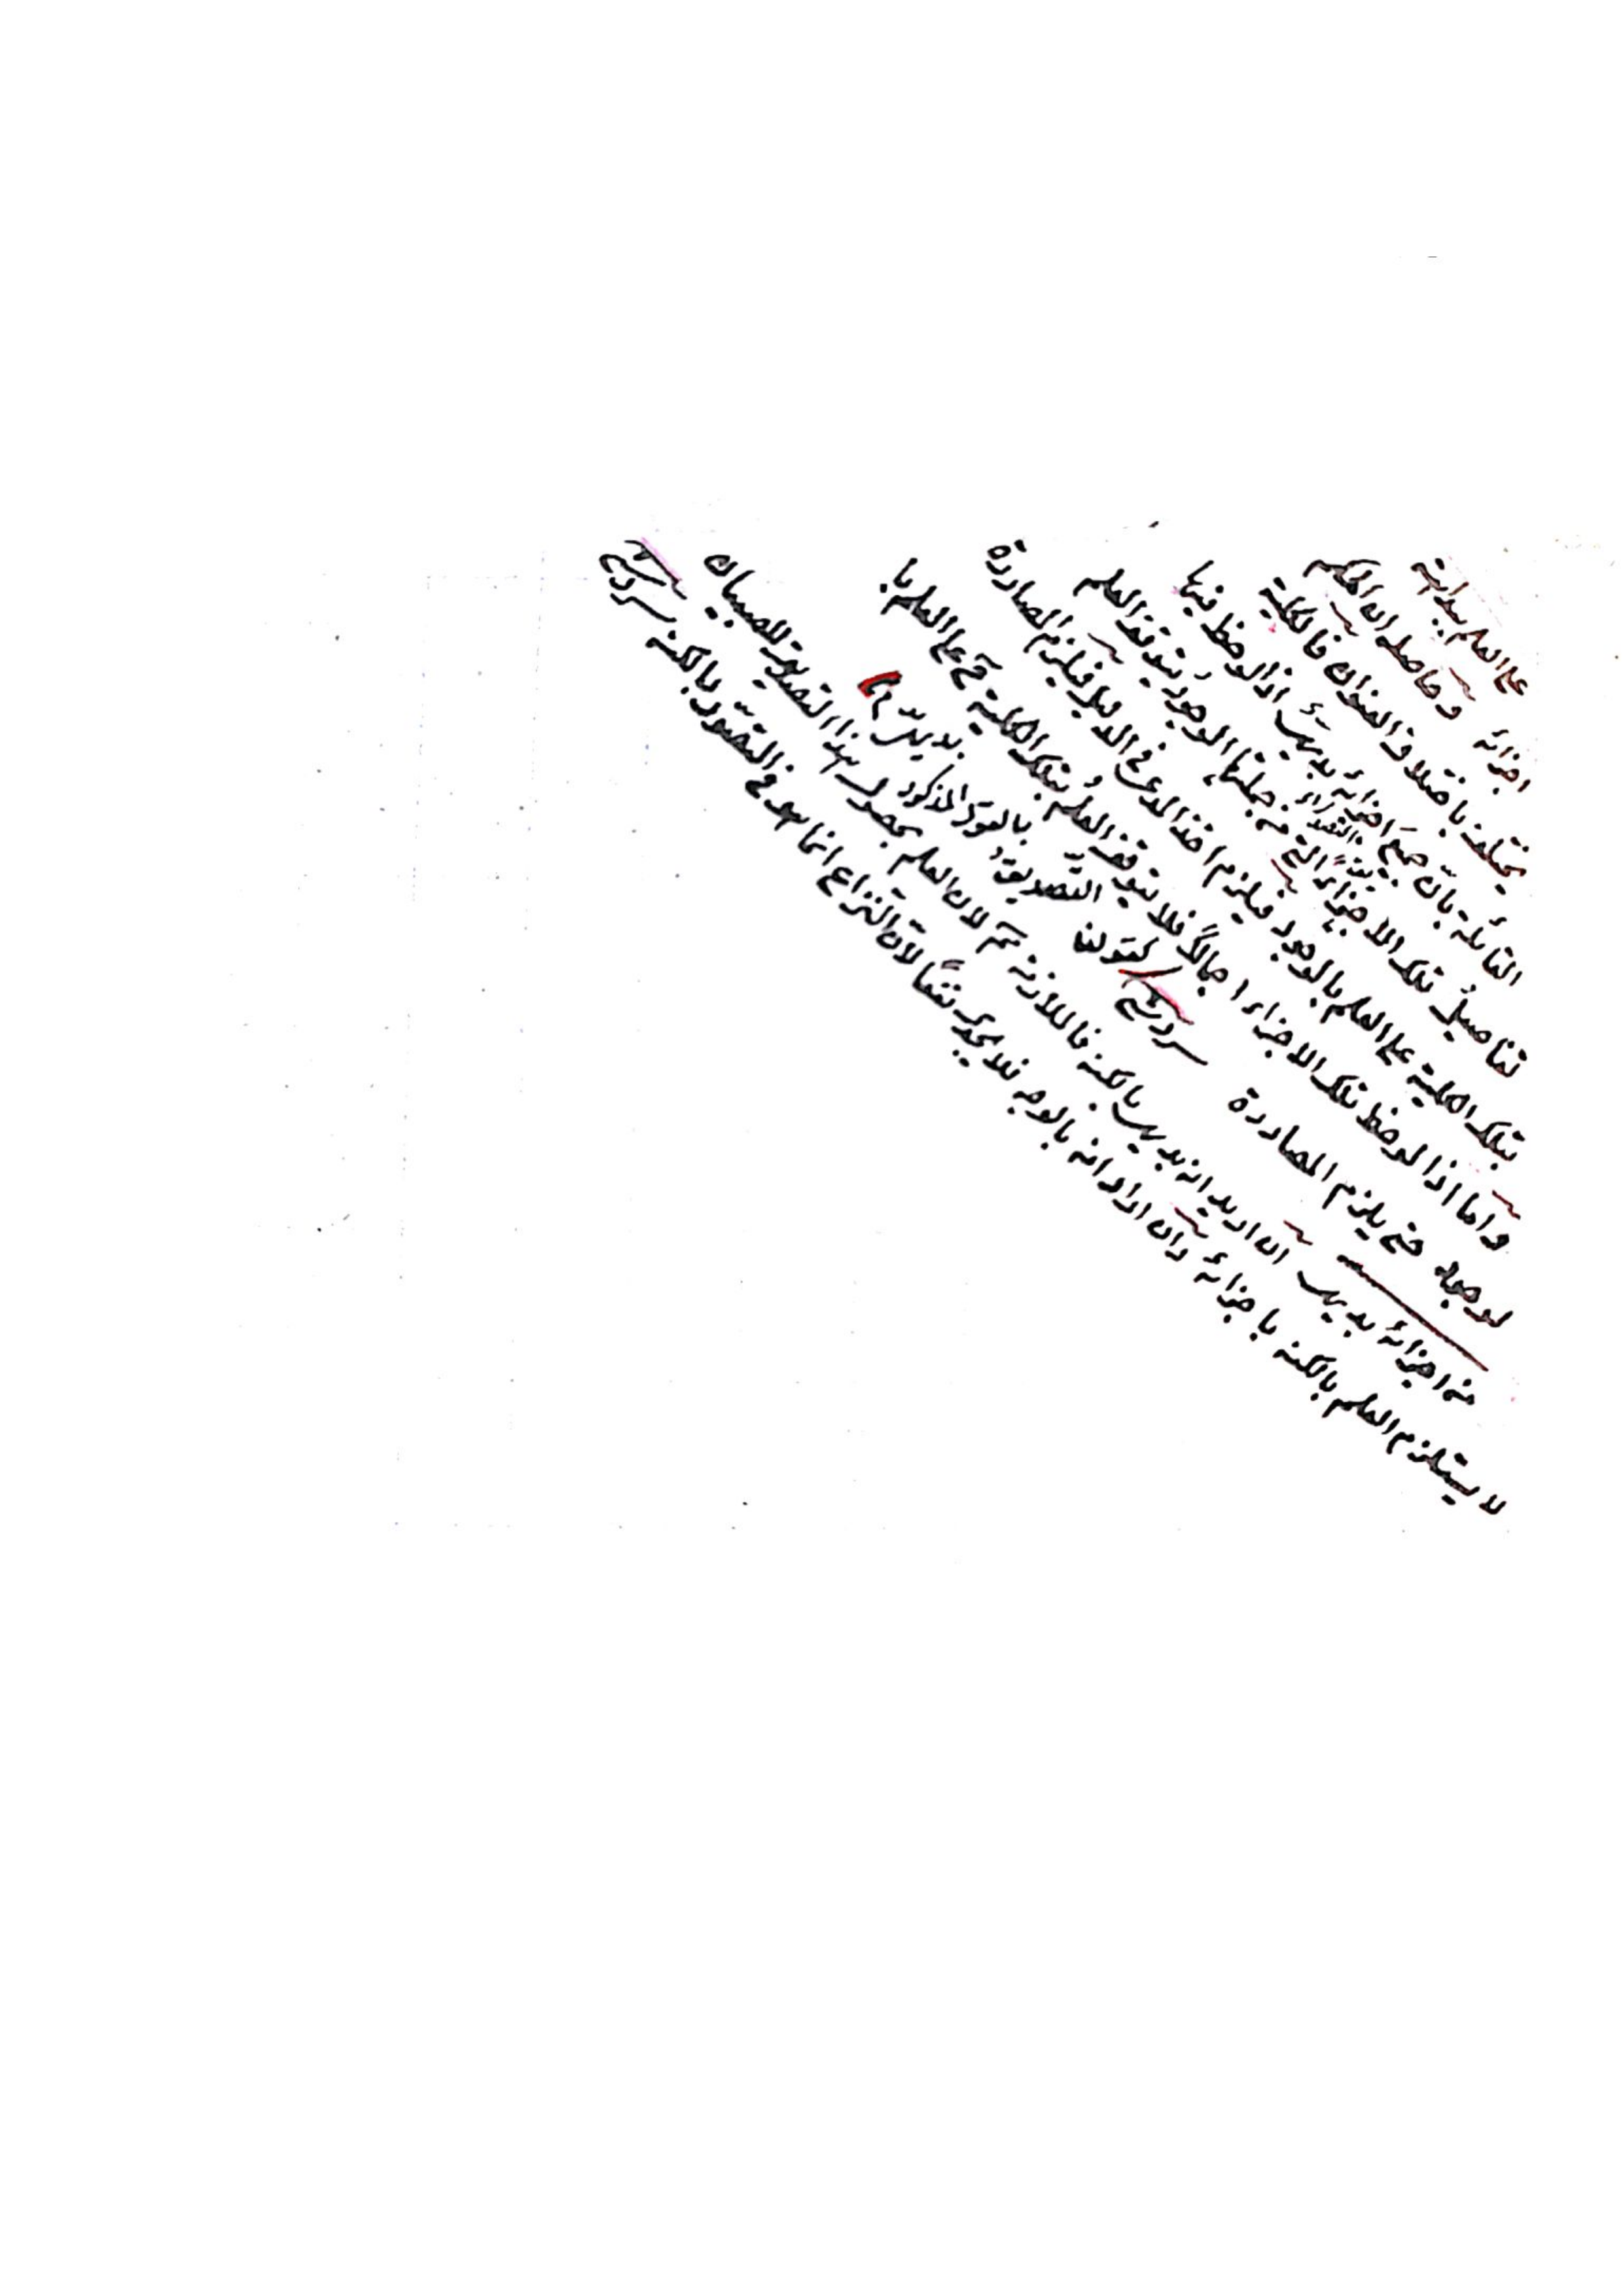 على العلم ببداهة
اجزائه وحاصله ان الحكم
يختلف باختلاف العنوان فالكلية
القائلة بان جميع اجزائه بديهية اذا لوحظ فيها
تفاصيل تلك الاجزاء التي من جملتها الوجود يتوقف العلم
بتلك الكلية على العلم بالوجود فيلزم اخذ المدعى في الدليل فيلزم المصادرة
واما اذا لوحظ تلك الاجزاء اجمالا فلا يتوقف العلم بتلك الكلية حتى على العلم با
لوجود حتى يلزم المصادرة
كقولنا التصديق بالنحو المذكور بديهي
من اجزائه بديهي ان اريد انه بديهي بالكنه فالملازمة مم لان العلم بحصول هذا التصديق للصبيان
لا يستلزم العلم بالكنه باجزائه وان اراد انه بالوجه فلا يجدي نفعا لان النزاع انما هو في التصور بالكنه